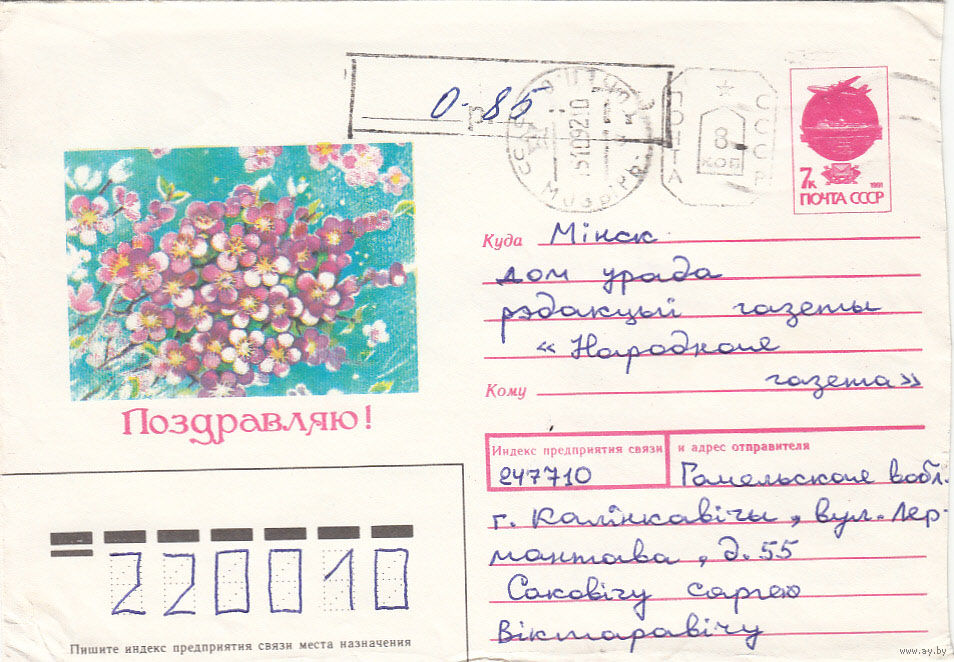 0-85
р.
ПОЧТА
СССР
8
коп
7к
1991
ПОЧТА СССР
Куда Мінск
дом урада
рэдакцыі газеты
« Народная
Кому газета»
Поздравляю!
Индекс предприятия связи и адрес отправителя
247710 Гомельская вобл.
г. Калінкавічы, вул. Лер-
мантава, д. 55
Саковічу Сяргею
Віктаравічу
220010
Пишите индекс предприятия связи места назначения
www.ay.by